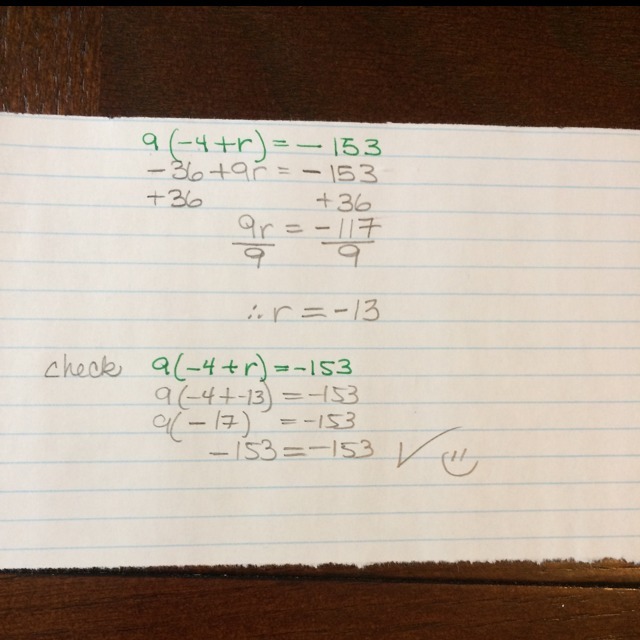 9(-4+r)=-153
-36+9r=-153
+36 +36
9r = -117
9 9
∴r=-13
check 9(-4+r)=-153
9(-4+-13)=-153
9(-17) =-153
-153=-153 ✓